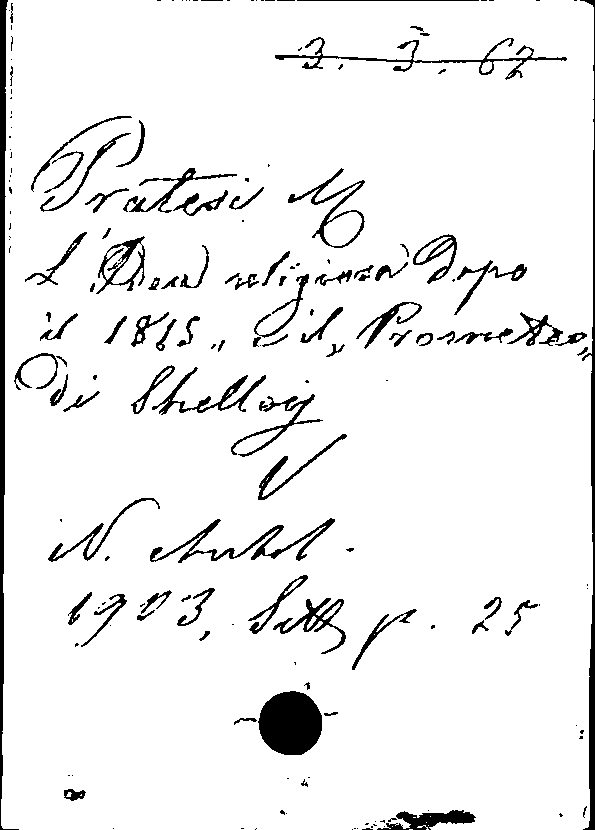 3. 3. 62
Pratesi M
L'Idea religiosa dopo
il 1815 „ e il „ Prometeo „
di Shelley
V
N. Antol.
1903, Sett p. 25